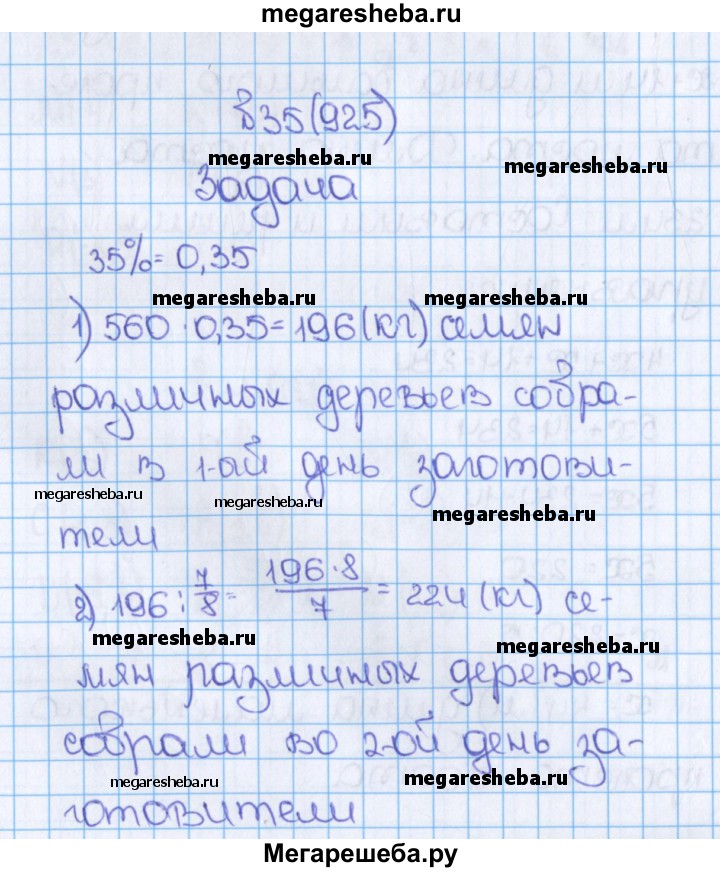 megaresheba.ru
в35(925)
megaresheba.ru
megaresheba.ru
Задача
35%=0,35
megaresheba.ru
megaresheba.ru
1) 560·0,35=196(кг) семян
различных деревьев собра-
ли в 1-ый день заготови-
megaresheba.ru
megaresheba.ru
megaresheba.ru
тели
2) 196:7/8= 196·8/7 = 224(кг) се-
megaresheba.ru
megaresheba.ru
мян различных деревьев
собрали во 2-ой день за-
megaresheba.ru
megaresheba.ru
готовители
Мегарешеба.ру